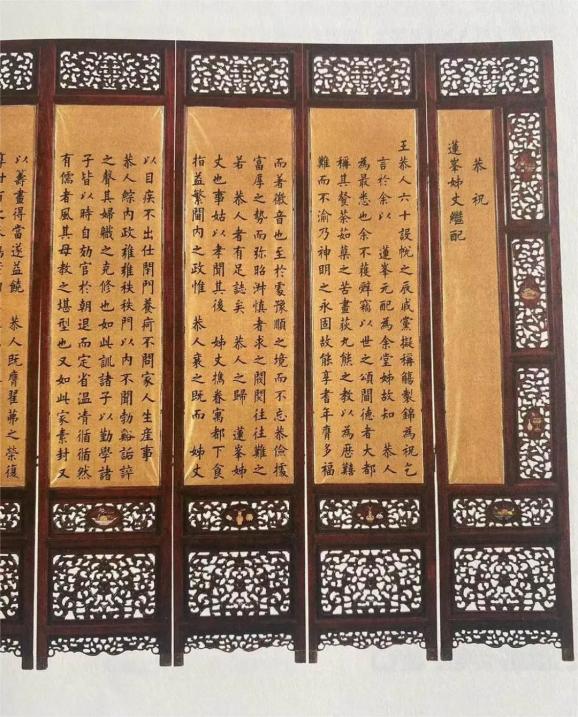 恭祝
蓮峯姊丈繼配
王恭人六十設帨之辰戚黨擬稱觴製錦為祝乞
言於余以 蓮峯元配為余堂姊故知 恭人
為最悉也余不獲辭竊以世之頌閫德者大都
稱其餐荼茹蘖之苦畫荻丸熊之教以為歷艱
難而不渝乃神明之永固故能享耆年膺多福
而著徽音也至於處豫順之境而不忘恭儉據
富厚之勢而弥昭淋慎者求之閥閱往往難之
若 恭人者有足誌矣 恭人之歸 蓮峯姊
丈也事姑以孝聞其後 姊丈攜眷寓都下食
指益繁閫內之政惟 恭人襄之既而 姊丈
以目疾不出仕閉門養疴不問家人生產事
恭人綜內政雍雍秩秩門以內不聞勃谿詬誶
之聲其婦職之克修也如此訓諸子以勤學諸
子皆以時自効官於朝退而定省溫凊循循然
有儒者風其母教之堪型也又如此家素封又
以籌畫得當遂益饒 恭人既膺翟茀之榮復